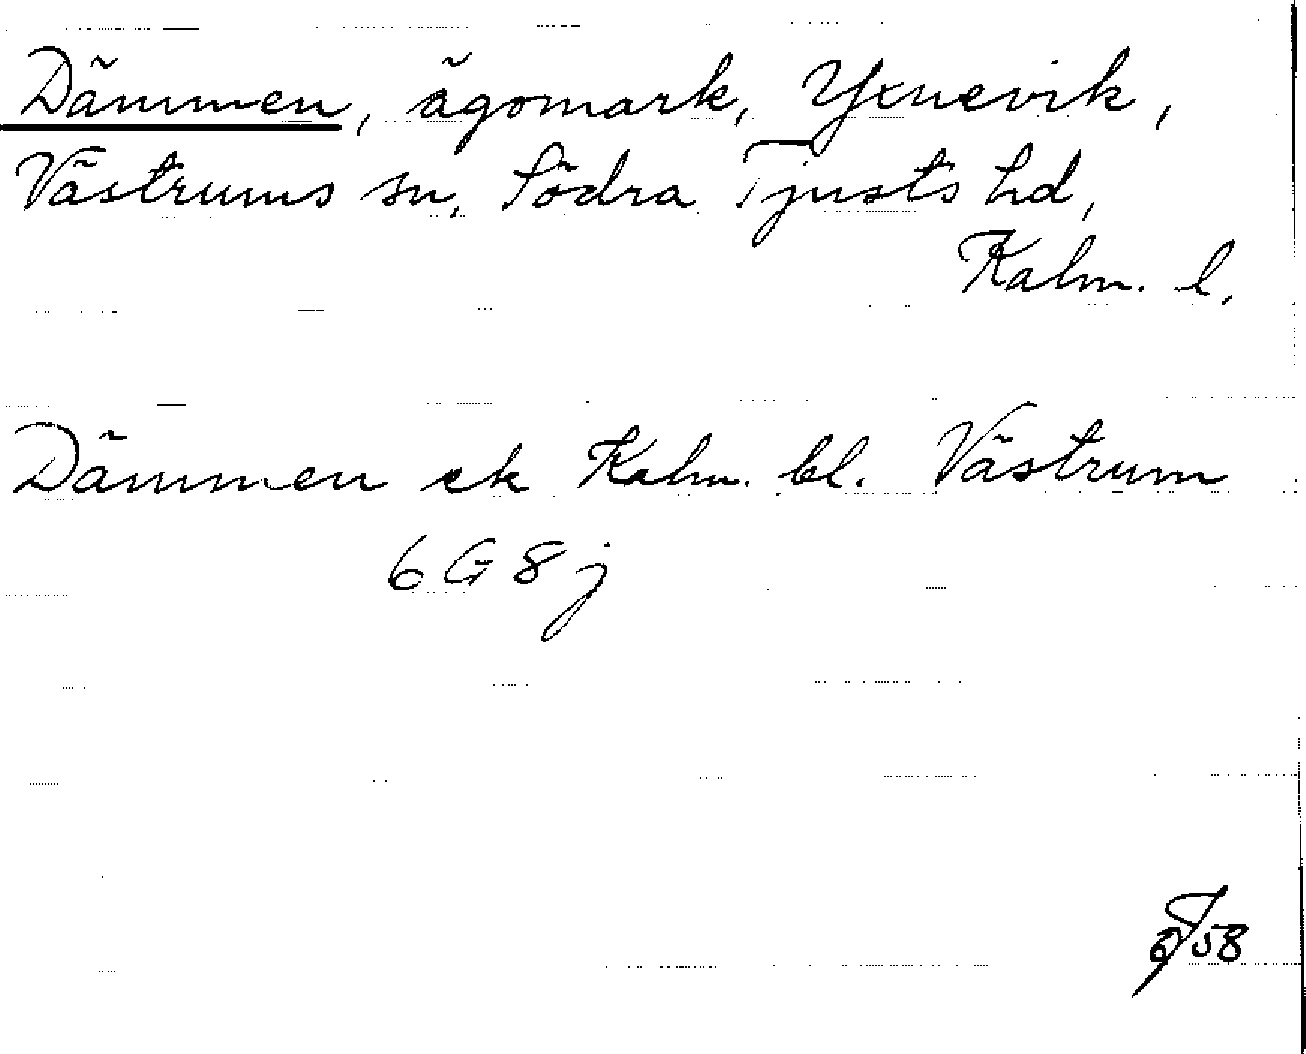 Dämmen, ägomark, Yxnevik,
Västrums sn, Södra Tjusts hd,
Kalm. l.
Dämmen ek Kalm. bl. Västrum
6 G 8 j
58